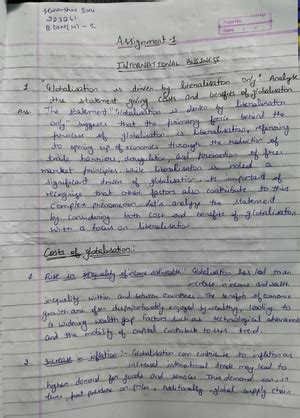 Himanshu Soni
B.COM(H) - C
Assignment 1
INTERNATIONAL BUSINESS
1 "Globalisation is driven by liberalisation only" Analyse
the statement giving costs and benefits of globalisation
Ans The statement "Globalisation is driven by liberalisation
only" suggests that the primary force behind the
process of globalisation is liberalisation, referring
to opening up of economies through the reduction of
trade barriers, deregulation, and promotion of free
market principles. while liberalisation is indeed a
significant driver of globalisation its important to
recognize that other factors also contribute to this
complex phenomenon. Let's analyze the statement
by considering both cost and benefits of globalisation
with a focus on liberalisation
Costs of globalisation:-
1. Rise in inequality of income and wealth: Globalisation has led to an
increase in income and wealth
inequality within and between countries. The benefits of economic
growth are often disproportionately enjoyed by wealthy, leading to
a widening wealth gap factors such as technological advancement
and the mobility of capital contribute to this trend.
2 Increase in inflation:- Globalisation can contribute to inflation as
increased international trade may lead to
higher demand for goods and services. This demand can, in
turn, put pressure on prices. Additionally global supply chain